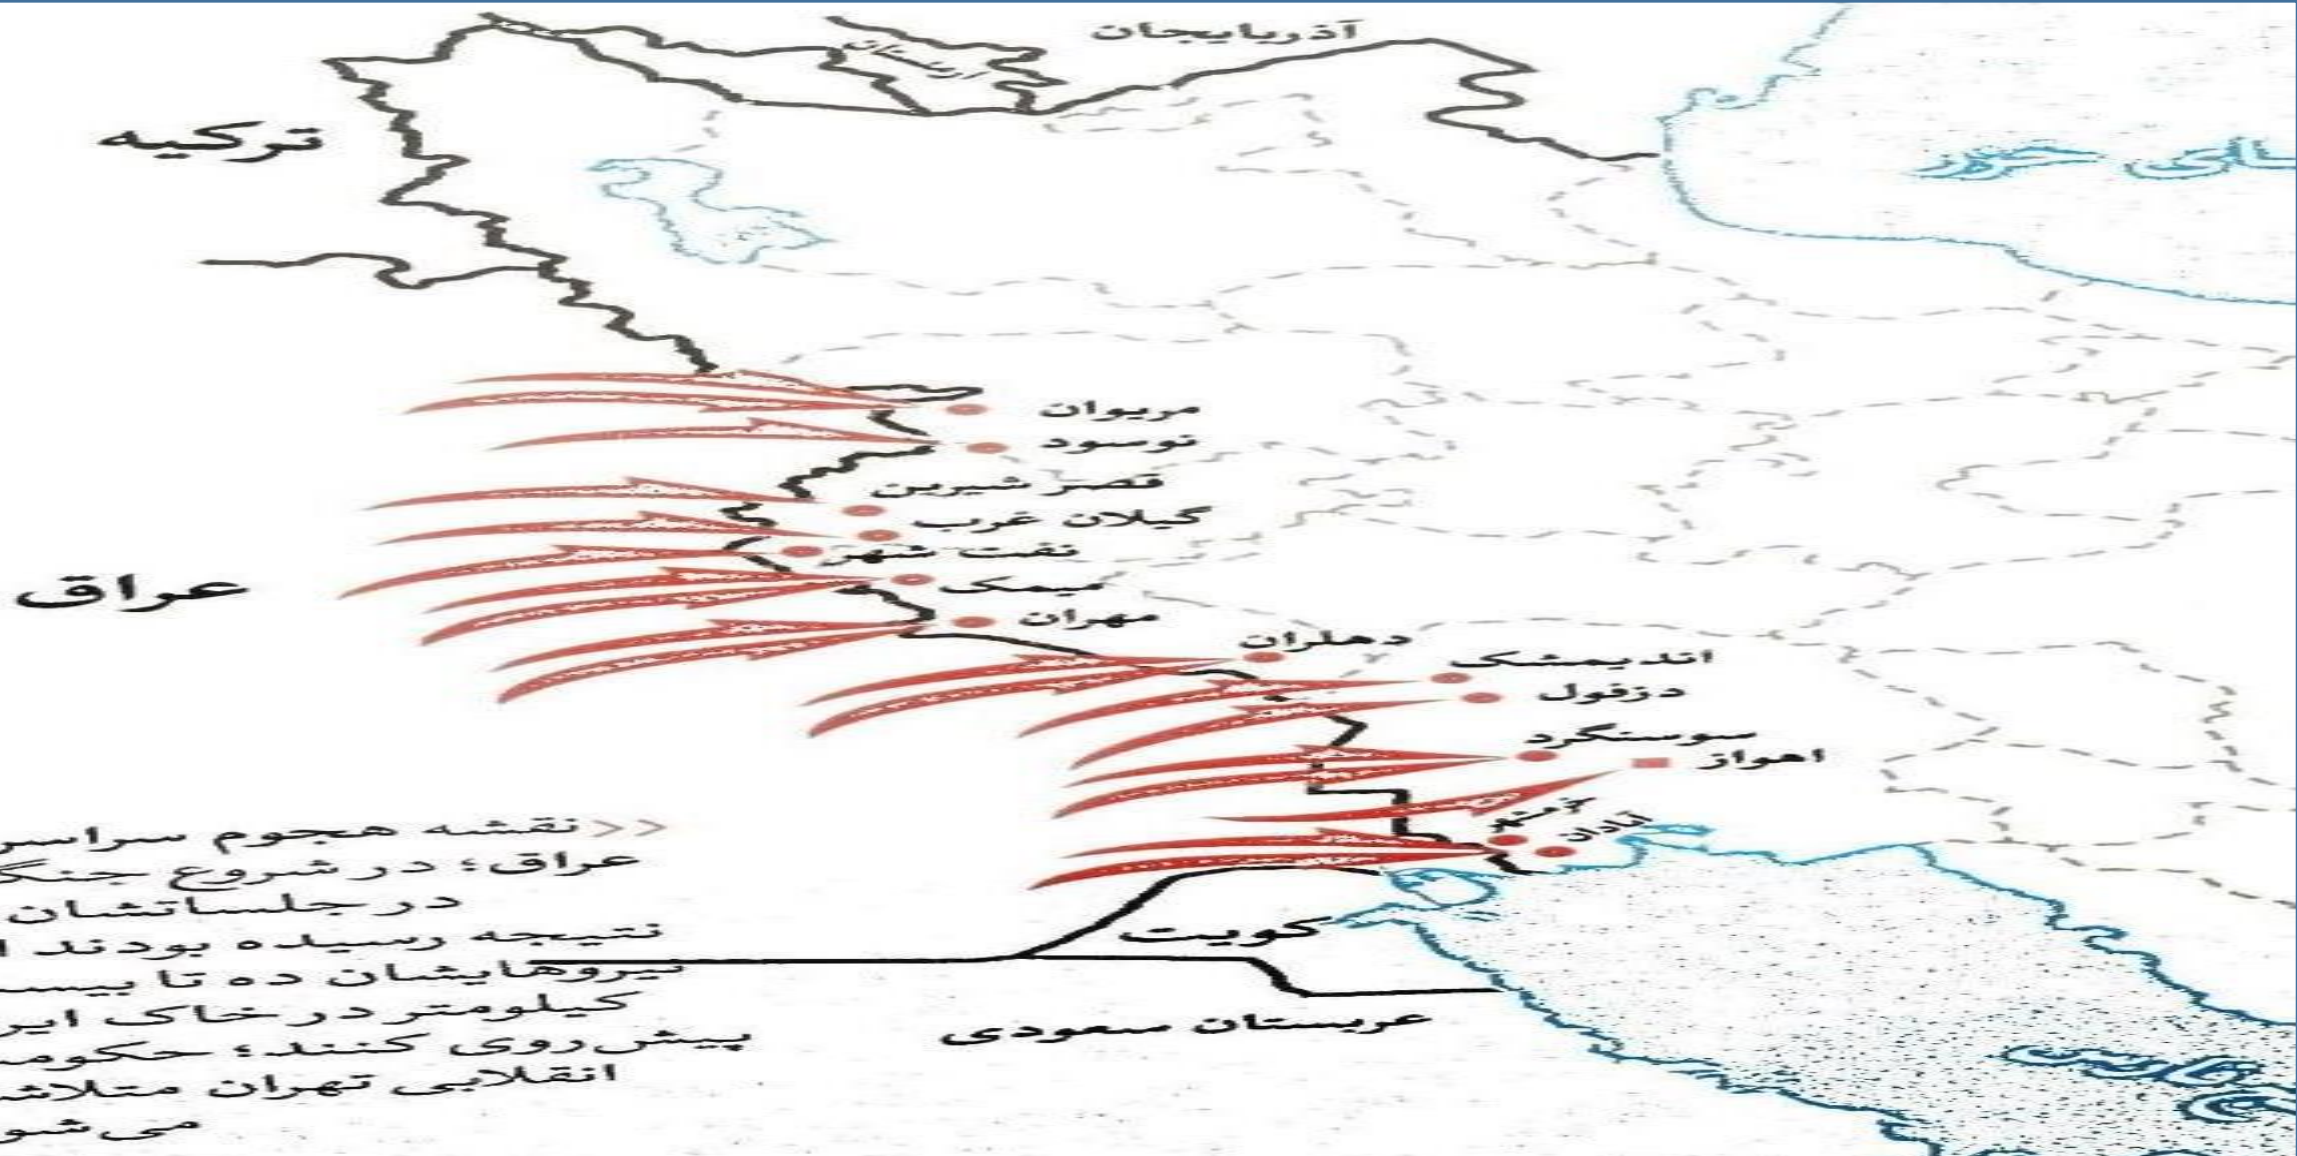 آذربایجان
ارمنستان
ترکیه
خزر
مریوان
نوسود
قصر شیرین
گیلان غرب
نفت شهر
میمک
مهران
عراق
دهلران
اندیمشک
دزفول
سوسنگرد
اهواز
خرمشهر
آبادان
کویت
عربستان سعودی
فارس
>>نقشه هجوم
عراق؛ در شروع
در جلساتشان
نتیجه رسیده بودند
نیروهایشان ده تا
کیلومتر در خاک
پیش‌روی کنند؛
انقلابی تهران